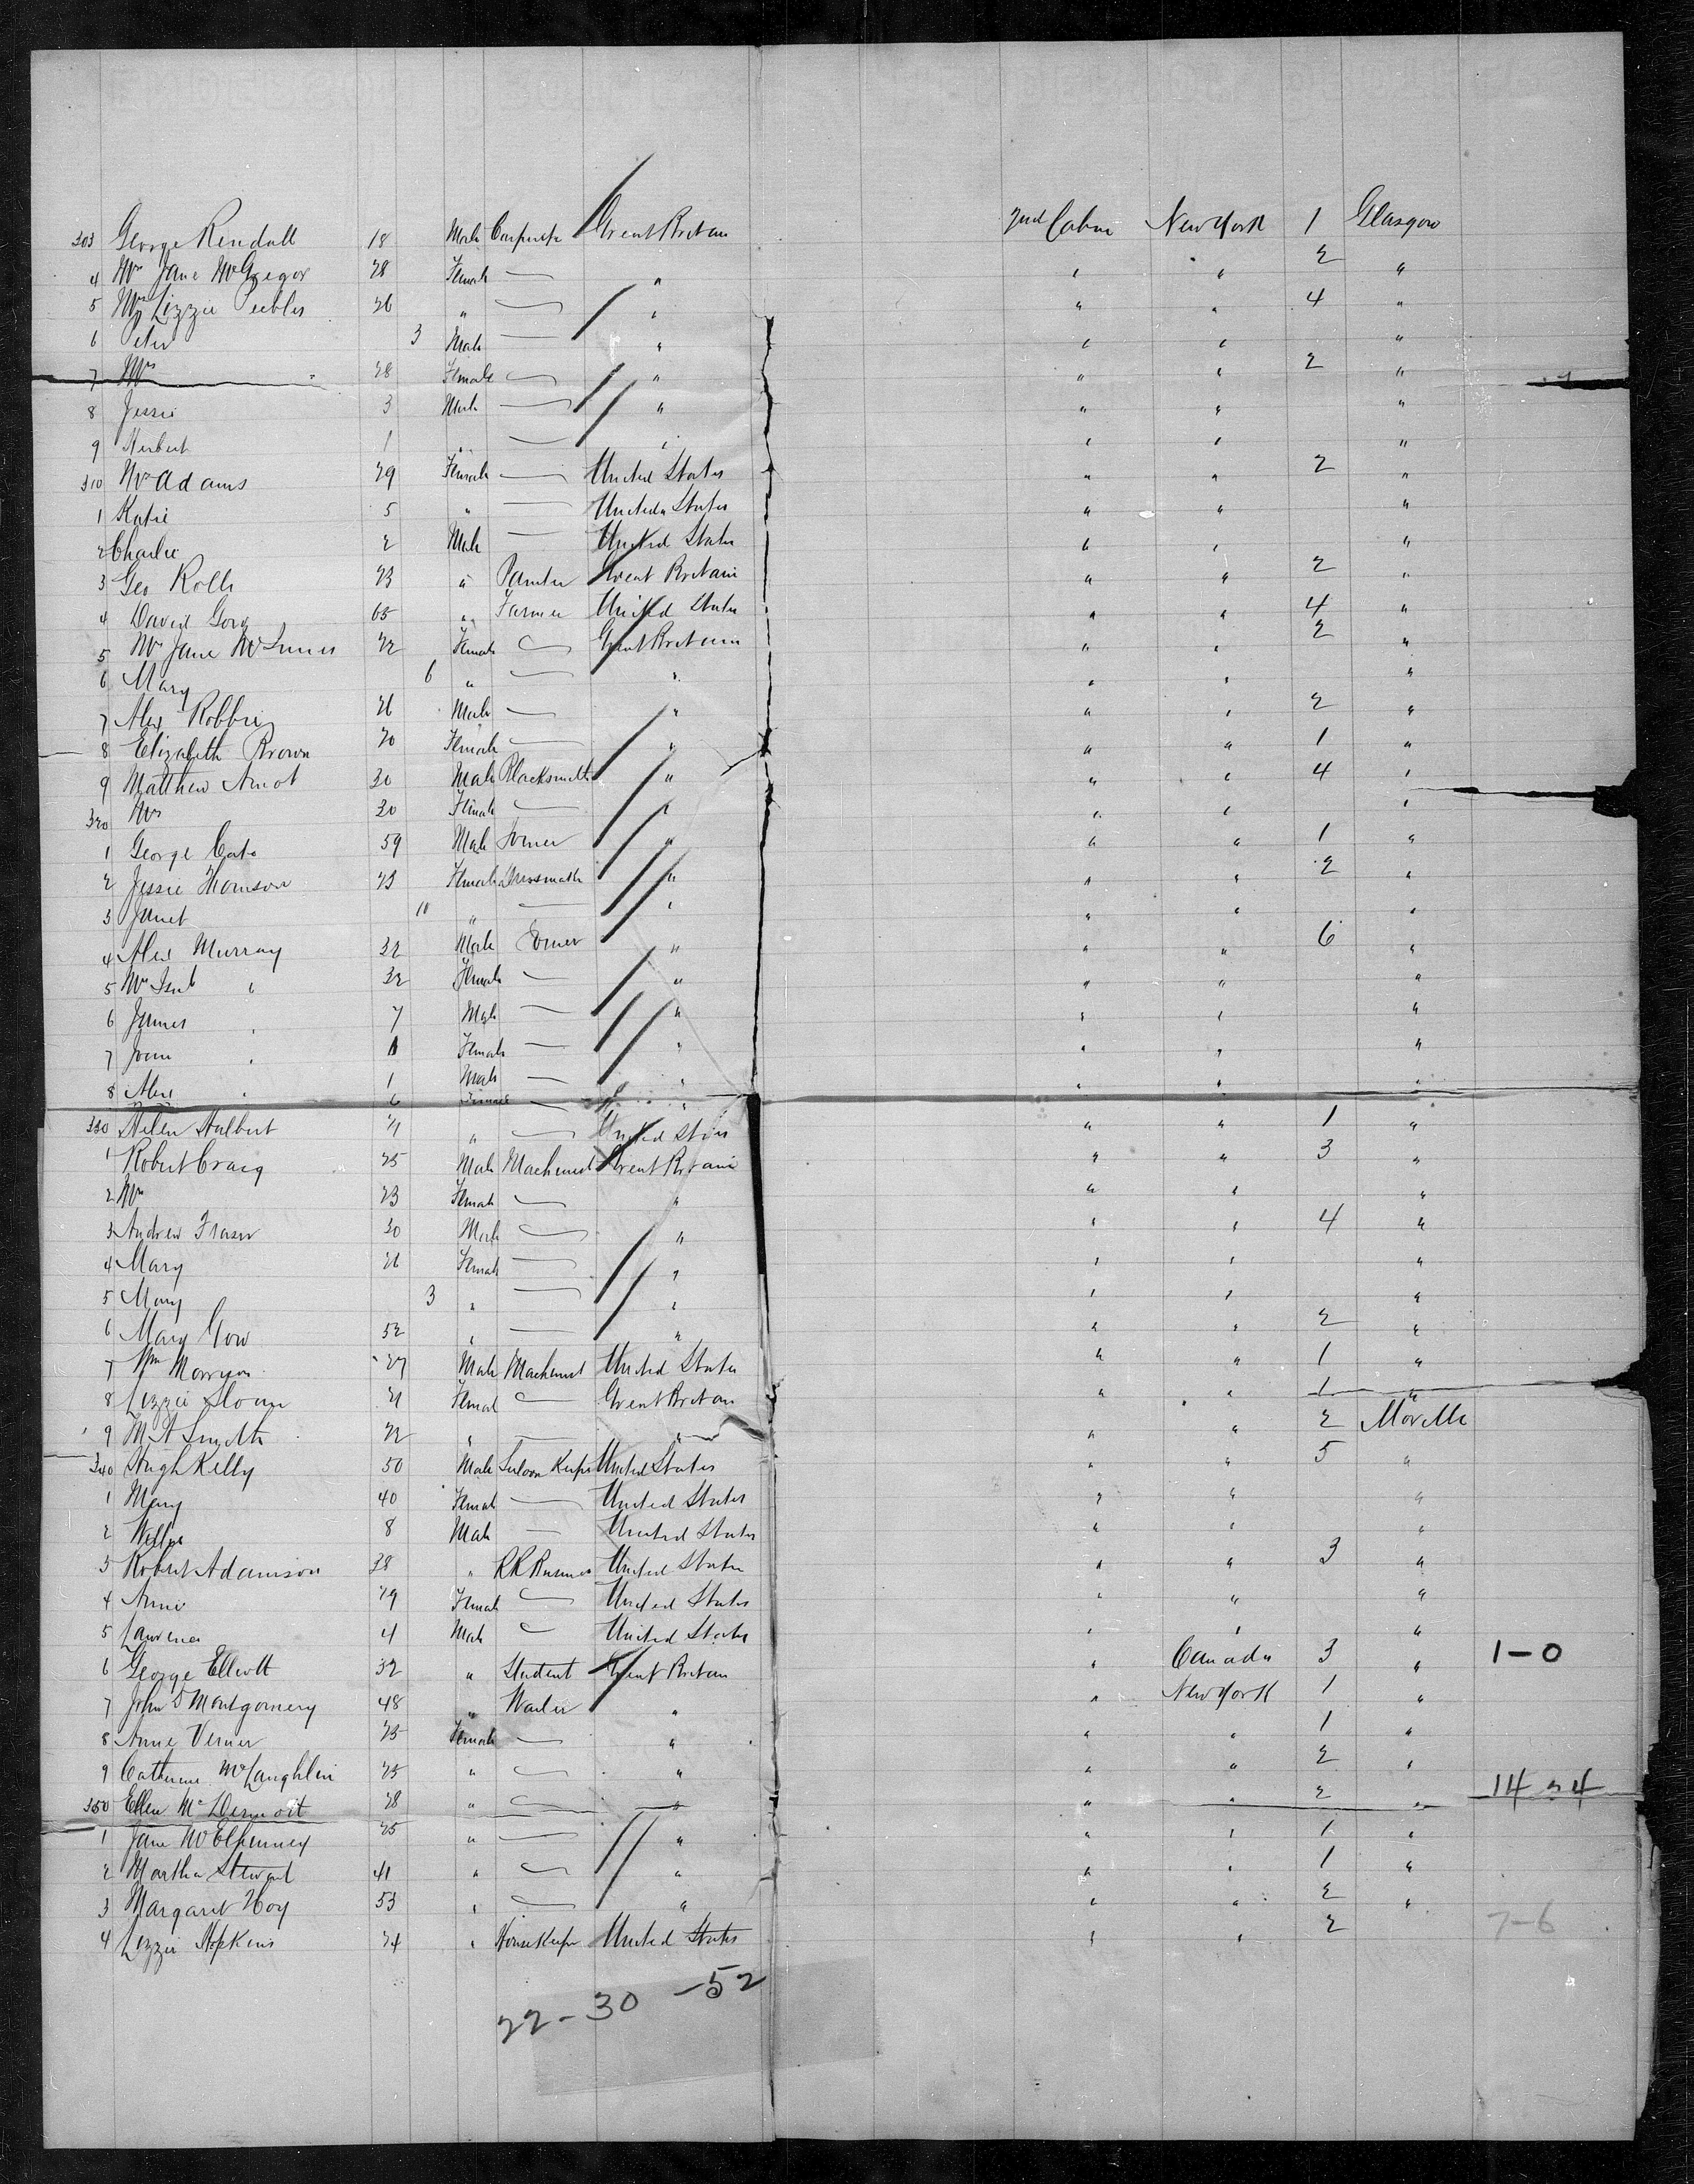 303 George Rendall 18 Male Carpenter Great Britain 2nd Cabin New York 1 Glasgow
4 Mrs Jane McGregor 28 Female — " " " 2 "
5 Mrs Lizzie Peebles 26 " — " " " 4 "
6 Peter 3 Male — " " " "
7 Mrs 28 Female — " " " 2 "
8 Jessie 3 Male — " " " "
9 Herbert 1 " — " " " "
310 Mrs Adams 29 Female — United States " " 2 "
1 Katie 5 " — United States " " "
2 Charlie 2 Male — United States " " "
3 Geo Rolls 23 " Painter Great Britain " " 2 "
4 David 65 " Farmer United States " " 4 "
5 Mrs Jane McInnes 22 Female — Great Britain " " 2 "
6 Mary 6 " — " " " "
7 Alex 26 Male — " " " 2 "
8 Elizabeth Brown 20 Female — " " " 1 "
9 Matthew Arnot 30 Male Blacksmith " " " 4 "
320 Mrs 30 Female — " " " "
1 George Cate 59 Male Joiner " " " 1 "
2 Jessie 23 Female " " " 2 "
3 Janet 10 " — " " " "
4 Alex Murray 32 Male Joiner " " " 6 "
5 Mrs " 32 Female — " " " "
6 James " 7 Male — " " " "
7 " Female — " " " "
8 Alex " 1 Male — " " " "
6 Female — "
330 Helen Hulbert 21 " — United States " " 1 "
1 Robert Craig 25 Male Machinist Great Britain " " 3 "
2 Mrs 23 Female — " " " "
3 Andrew Fraser 30 Male — " " " 4 "
4 Mary 26 Female — " " " "
5 Mary 3 " — " " " "
6 Mary Gow 52 " — " " " 2 "
7 Wm Morrison 27 Male Machinist United States " " 1 "
8 Lizzie Sloan 21 Female — Great Britain " " 1 "
9 M A Smyth 22 " — " " " 2 Moville
340 Hugh Kelly 50 Male Saloon Keeper United States " " 5 "
1 Mary 40 Female — United States " " "
2 Willie 8 Male — United States " " "
3 Robert Adamson 38 " RR United States " " 3 "
4 Annie 29 Female — United States " " "
5 Lawrence 4 Male — United States " " "
6 George Elliott 32 " Student Great Britain " Canada 3 " 1-0
7 John D Montgomery 48 " " " New York 1 "
8 Anne Verner 25 Female — " " " 1 "
9 Catherine McLaughlin 25 " — " " " 2 "
350 Ellen McDermott 28 " — " " " 2 " 14-4
1 Jane McElhinney 25 " — " " " 1 "
2 Martha Stewart 41 " — " " " 1 "
3 Margaret Hoy 53 " — " " " 2 "
4 Lizzie Hopkins 24 " Housekeeper United States " " 2 7-6
22-30-52